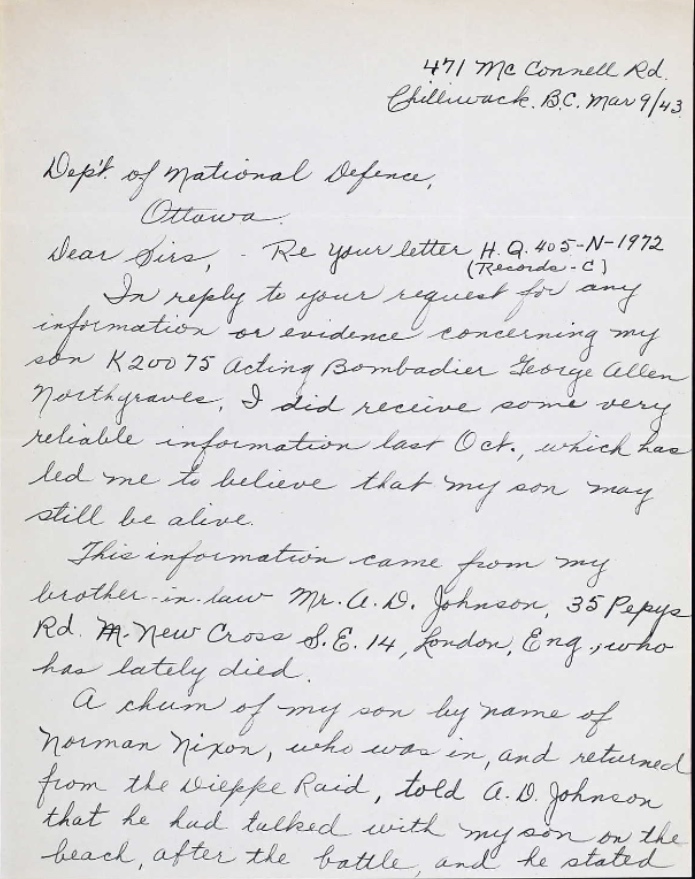 471 Mc Connell Rd.
Chilliwack. B.C. Mar 9/43
Dep't. of National Defence,
Ottawa.
Dear Sirs, - Re your letter H.Q. 405-N-1972
(Records - C)
In reply to your request for any
information or evidence concerning my
son K20075 Acting Bombadier George Allen
Northgraves, I did receive some very
reliable information last Oct., which has
led me to believe that my son may
still be alive.
This information came from my
brother-in-law Mr. A. D. Johnson, 35 Pepys
Rd. New Cross S.E. 14, London, Eng., who
has lately died.
A chum of my son by name of
Norman Nixon, who was in, and returned
from the Dieppe Raid, told A. D. Johnson
that he had talked with my son on the
beach, after the battle, and he stated